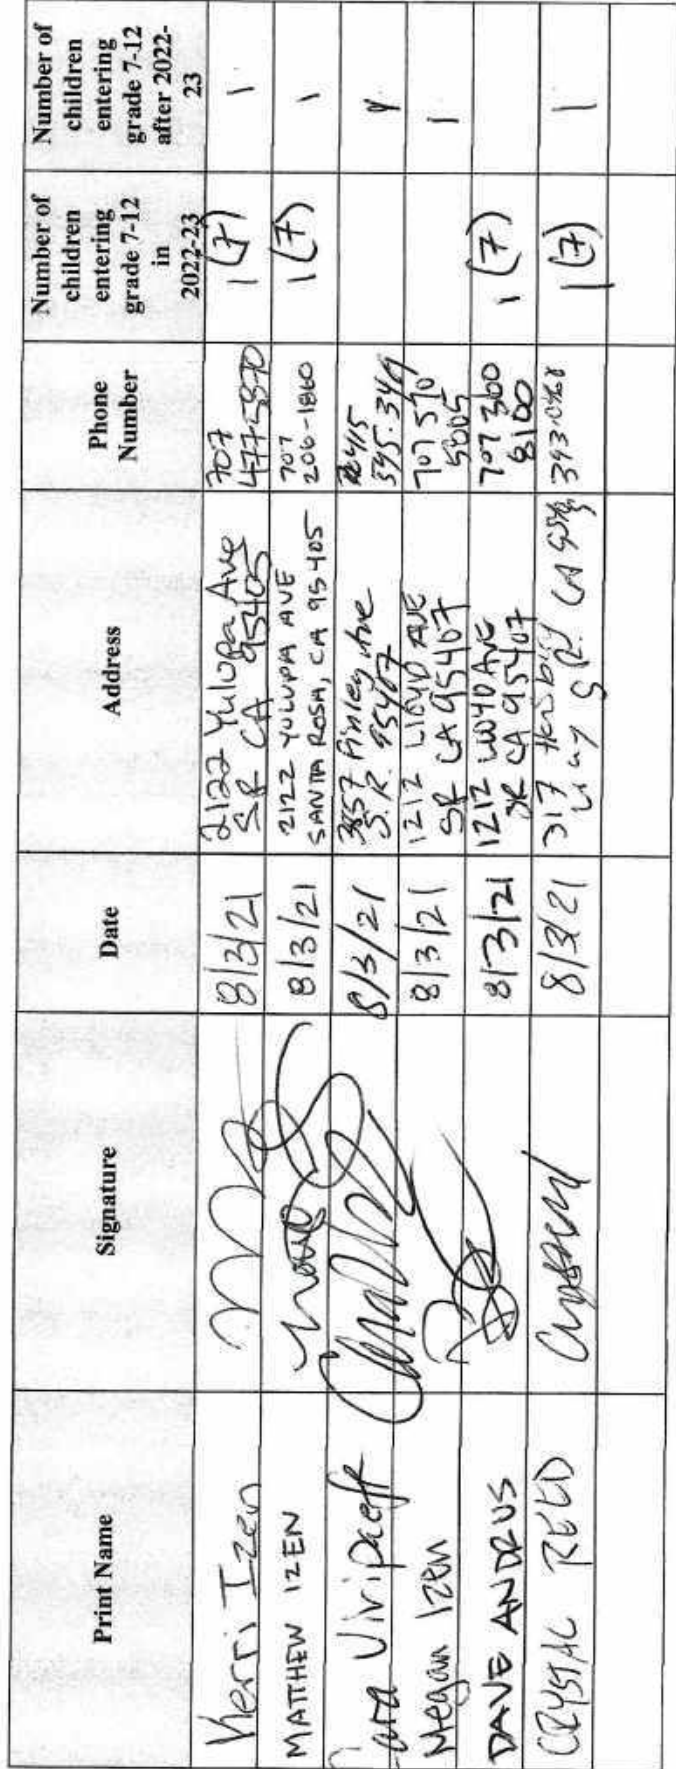 Print Name
Signature
Date
Address
Phone
Number
Number of
children
entering
grade 7-12
in
2022-23
Number of
children
entering
grade 7-12
after 2022-
23
Kerri Izen
8/3/21
2122 Yulupa Ave
SR CA 95405
707
477-5870
1 (7)
1
MATTHEW IZEN
8/3/21
2122 YULUPA AVE
SANTA ROSA, CA 95405
707
206-1860
1 (7)
1
8/3/21
Finley Ave
S. R. 95407
415
Megan Izen
8/3/21
1212 LLOYD AVE
SR CA 95407
707 570
5005
1
DAVE ANDRUS
8/3/21
1212 LLOYD AVE
SR CA 95407
707 360
8100
1 (7)
CRYSTAL REED
8/3/21
317
Way S.R. CA
1 (7)
1